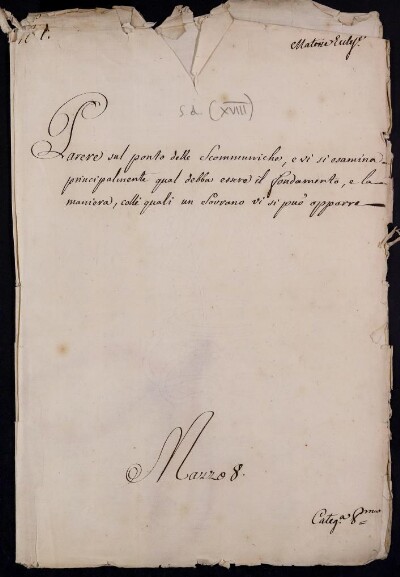 Materie Eccl.e
s.d. (XVIII)
Parere sul ponto delle Scommuniche, e vi si esamina
principalmente qual debba essere il fondamento, e la
maniera, colli quali un Sovrano vi si può opporre
Mazzo 8.
Categ.a 8.ma